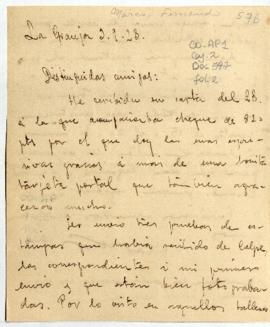 Marco, Fernando
576
La Granja 3-9-28.
CO-AP1
Caj. 2
Doc 547
fol 2
Distinguidos amigos:
He recibido su carta del 28
á la que acompañaba cheque de 81-
pts por el que doy las mas expre-
sivas gracias á mas de una bonita
tarjeta postal que tambien agra-
cezco mucho.
Les envio tres pruebas de es-
tampas que habia recibido de Calpe,
las correspondientes á mi primer
envio y que están bien fotograba-
das. Por lo visto en aquellos talleres